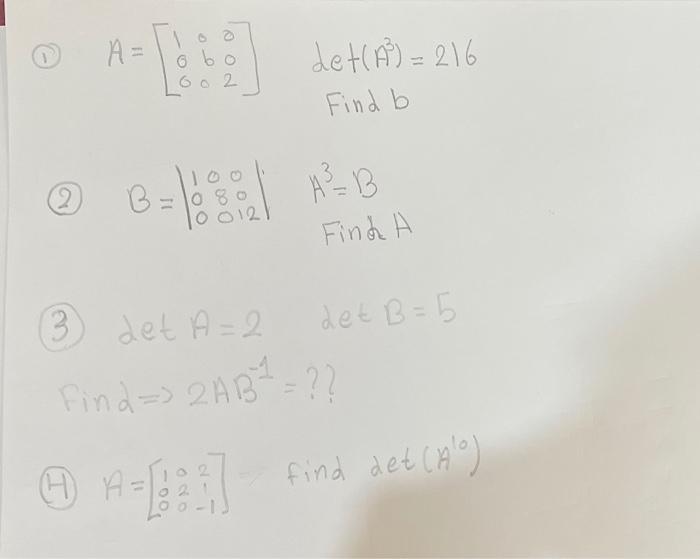 ① A = [1 0 0
0 b 0
0 0 2] det(A³) = 216
Find b
② B = |1 0 0
0 8 0
0 0 12| A³ = B
Find A
③ det A = 2 det B = 5
Find => 2AB⁻¹ = ??
④ A = [1 0 2
0 2 1
0 0 -1] find det(A¹⁰)